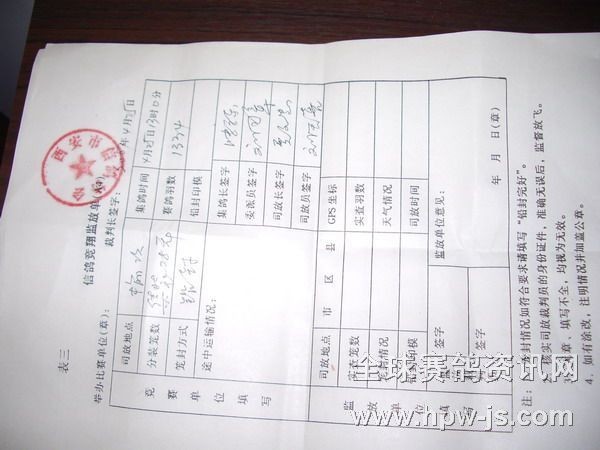 表三
信鸽竞翔监放单
举办比赛单位(章):
裁判长签字:
4月25日
竞赛单位填写
司放地点
集鸽时间
4月25日13时0分
分装笼数
赛鸽羽数
1334
笼封方式
铅封
铅封印模
途中运输情况:
集鸽长签字
委派员签字
司放长签字
司放员签字
监放单位填写
司放地点
市 区 县
GPS 坐标
实查笼数
实查羽数
笼封情况
天气情况
铅封印模
司放时间
签字
签字
监放单位意见:
年 月 日(章)
注:
封情况如符合要求请填写“铅封完好”。
实司放裁判员的身份证件,准确无误后,监督放飞。
章、填写不全,均视为无效。
4、如有涂改,注明情况并加盖公章。
全球赛鸽资讯网
www.hpw-js.com